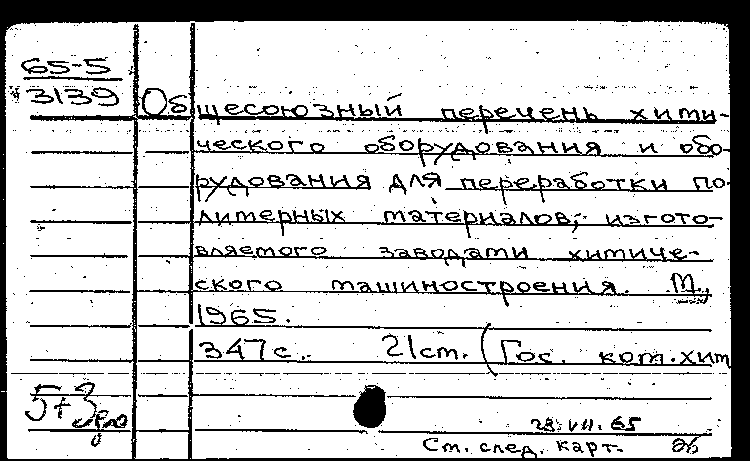 65-5
3139
Общесоюзный перечень хими-
ческого оборудования и обо-
рудования для переработки по-
лимерных материалов, изгото-
вляемого заводами химиче-
ского машиностроения. М.,
1965.
347с. 21см. (Гос. ком. хим
5+3
28.VII.65
См. след. карт.